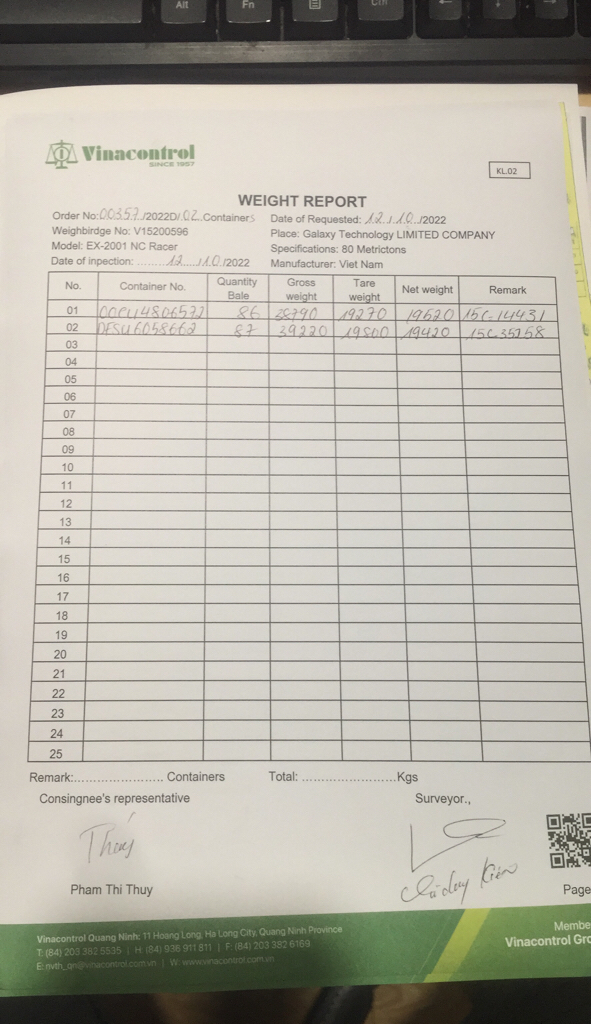 Alt
Fn
Ctrl
Vinacontrol
SINCE 1957
KL.02
WEIGHT REPORT
Order No: 00357 /2022D/ 02 Containers Date of Requested: 12 / 10 /2022
Weighbirdge No: V15200596 Place: Galaxy Technology LIMITED COMPANY
Model: EX-2001 NC Racer Specifications: 80 Metrictons
Date of inpection: ........ 12 ... /10 /2022 Manufacturer: Viet Nam
No. Container No. Quantity Bale Gross weight Tare weight Net weight Remark
01 86 38790 19270 19520 15C-14431
02 DFSU6058662 87 39220 19800 19420 15C35258
03
04
05
06
07
08
09
10
11
12
13
14
15
16
17
18
19
20
21
22
23
24
25
Remark:....................... Containers Total: ........................Kgs
Consingnee's representative Surveyor.,
Thuy
Pham Thi Thuy Page
Vinacontrol Quang Ninh: 11 Hoang Long, Ha Long City, Quang Ninh Province
T: (84) 203 382 5535 | H: (84) 936 911 811 | F: (84) 203 382 6169
E: nvth_qn@vinacontrol.com.vn | W: www.vinacontrol.com.vn
Membe
Vinacontrol Gro